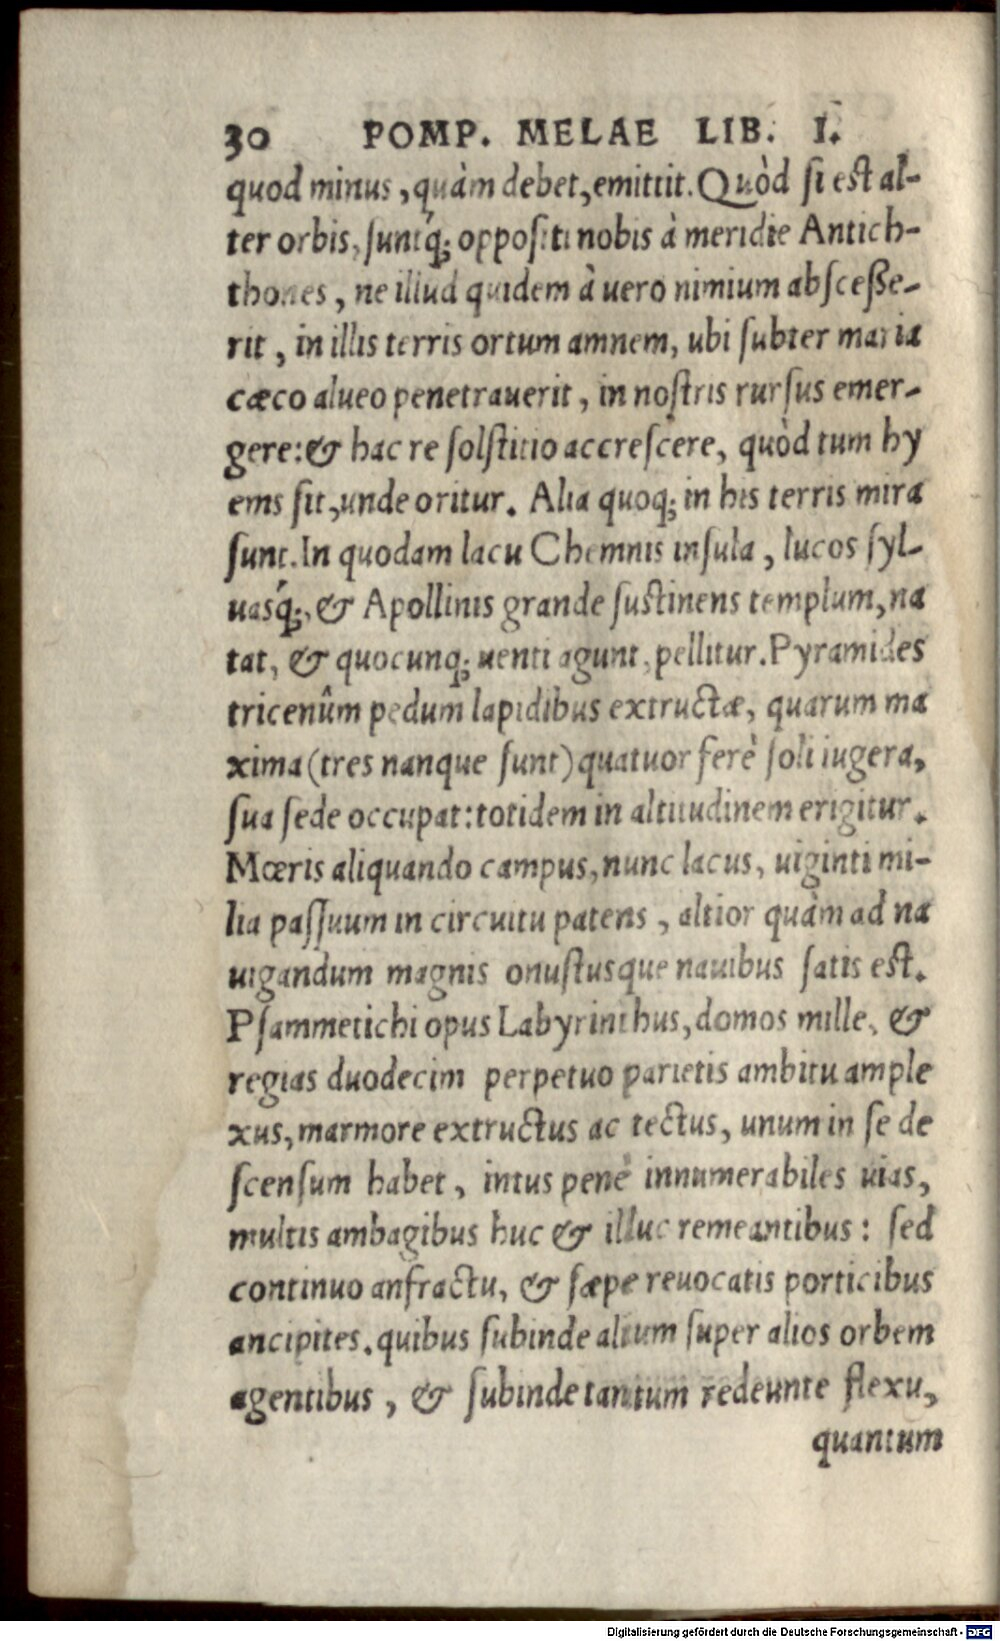 30 POMP. MELAE LIB. I.
quod minus, quàm debet, emittit. Quòd ſi eſt al-
ter orbis, ſuntq́; oppoſiti nobis à meridie Antich-
thones, ne illud quidem à uero nimium abſceße-
rit, in illis terris ortum amnem, ubi ſubter maria
cæco alueo penetrauerit, in noſtris rurſus emer-
gere: & hac re ſolſtitio accreſcere, quòd tum hy
ems ſit, unde oritur. Alia quoq; in his terris mira
ſunt. In quodam lacu Chemnis inſula, lucos ſyl-
uasq́;, & Apollinis grande ſuſtinens templum, na
tat, & quocunq; uenti agunt, pellitur. Pyramides
tricenûm pedum lapidibus extructæ, quarum ma
xima (tres nanque ſunt) quatuor ferè ſoli iugera,
ſua ſede occupat: totidem in altitudinem erigitur.
Mœris aliquando campus, nunc lacus, uiginti mi-
lia paſſuum in circuitu patens, altior quàm ad na
uigandum magnis onuſtusque nauibus ſatis eſt.
Pſammetichi opus Labyrinthus, domos mille, &
regias duodecim perpetuo parietis ambitu ample
xus, marmore extructus ac tectus, unum in ſe de
ſcenſum habet, intus penè innumerabiles uias,
multis ambagibus huc & illuc remeantibus: ſed
continuo anfractu, & ſæpe reuocatis porticibus
ancipites. quibus ſubinde alium ſuper alios orbem
agentibus, & ſubinde tantum redeunte flexu,
quantum
Digitalisierung gefördert durch die Deutsche Forschungsgemeinschaft - DFG